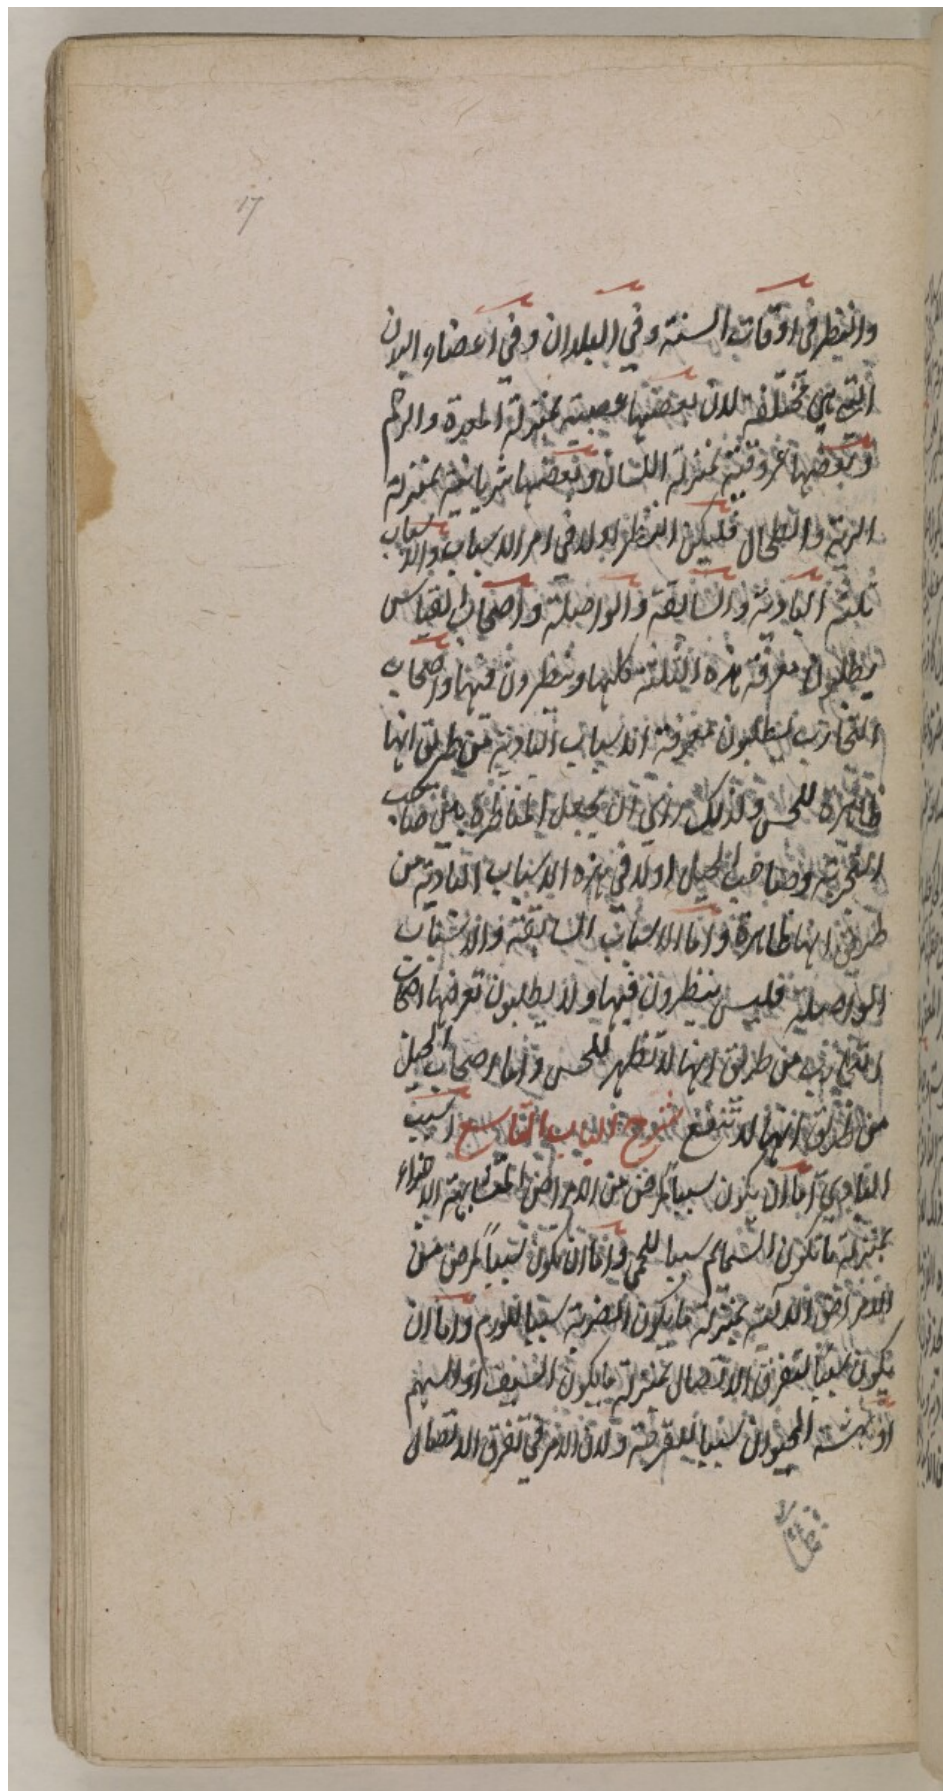 17
والنظر فى اوقات السنة وفى البلدان وفى اعضاء البدن
التى هى مختلفة لان بعضها عصبية بمنزلة المعدة والرحم
وبعضها عروقية بمنزلة اللسان وبعضها شريانية بمنزلة
الرية والطحال فليكن النظر اولا فى امر الاسباب والاسباب
ثلثة البادية والسابقة والواصلة واصحاب القياس
يطلبون معرفة هذه الثلثة كلها وينظرون فيها واصحاب
التجارب يطلبون معرفة الاسباب البادية من طريق انها
ظاهرة للحس ولذلك راى ان يجعل المناظرة بين صاحب
التجربة وصاحب الحيل اولا فى هذه الاسباب البادية من
طريق انها ظاهرة واما الاسباب السابقة والاسباب
الواصلة فليس ينظرون فيها ولا يطلبون تعرفها اصحاب
التجارب من طريق انها لا تظهر للحس واما اصحاب الحيل
من طريق انها لا تنفع شرح الباب التاسع السبب
البادى اما ان يكون سببا لمرض من الامراض المتشابهة الاجزاء
بمنزلة ما تكون السمائم سببا للحمى واما ان تكون سببا لمرض من
الامراض الالية بمنزلة ما يكون الضربة سببا للورم واما ان
يكون سببا لتفرق الاتصال بمنزلة ما يكون السيف او السهم
او نهشة الحيوان سببا للقرحة ولان الامر فى تفرق الاتصال